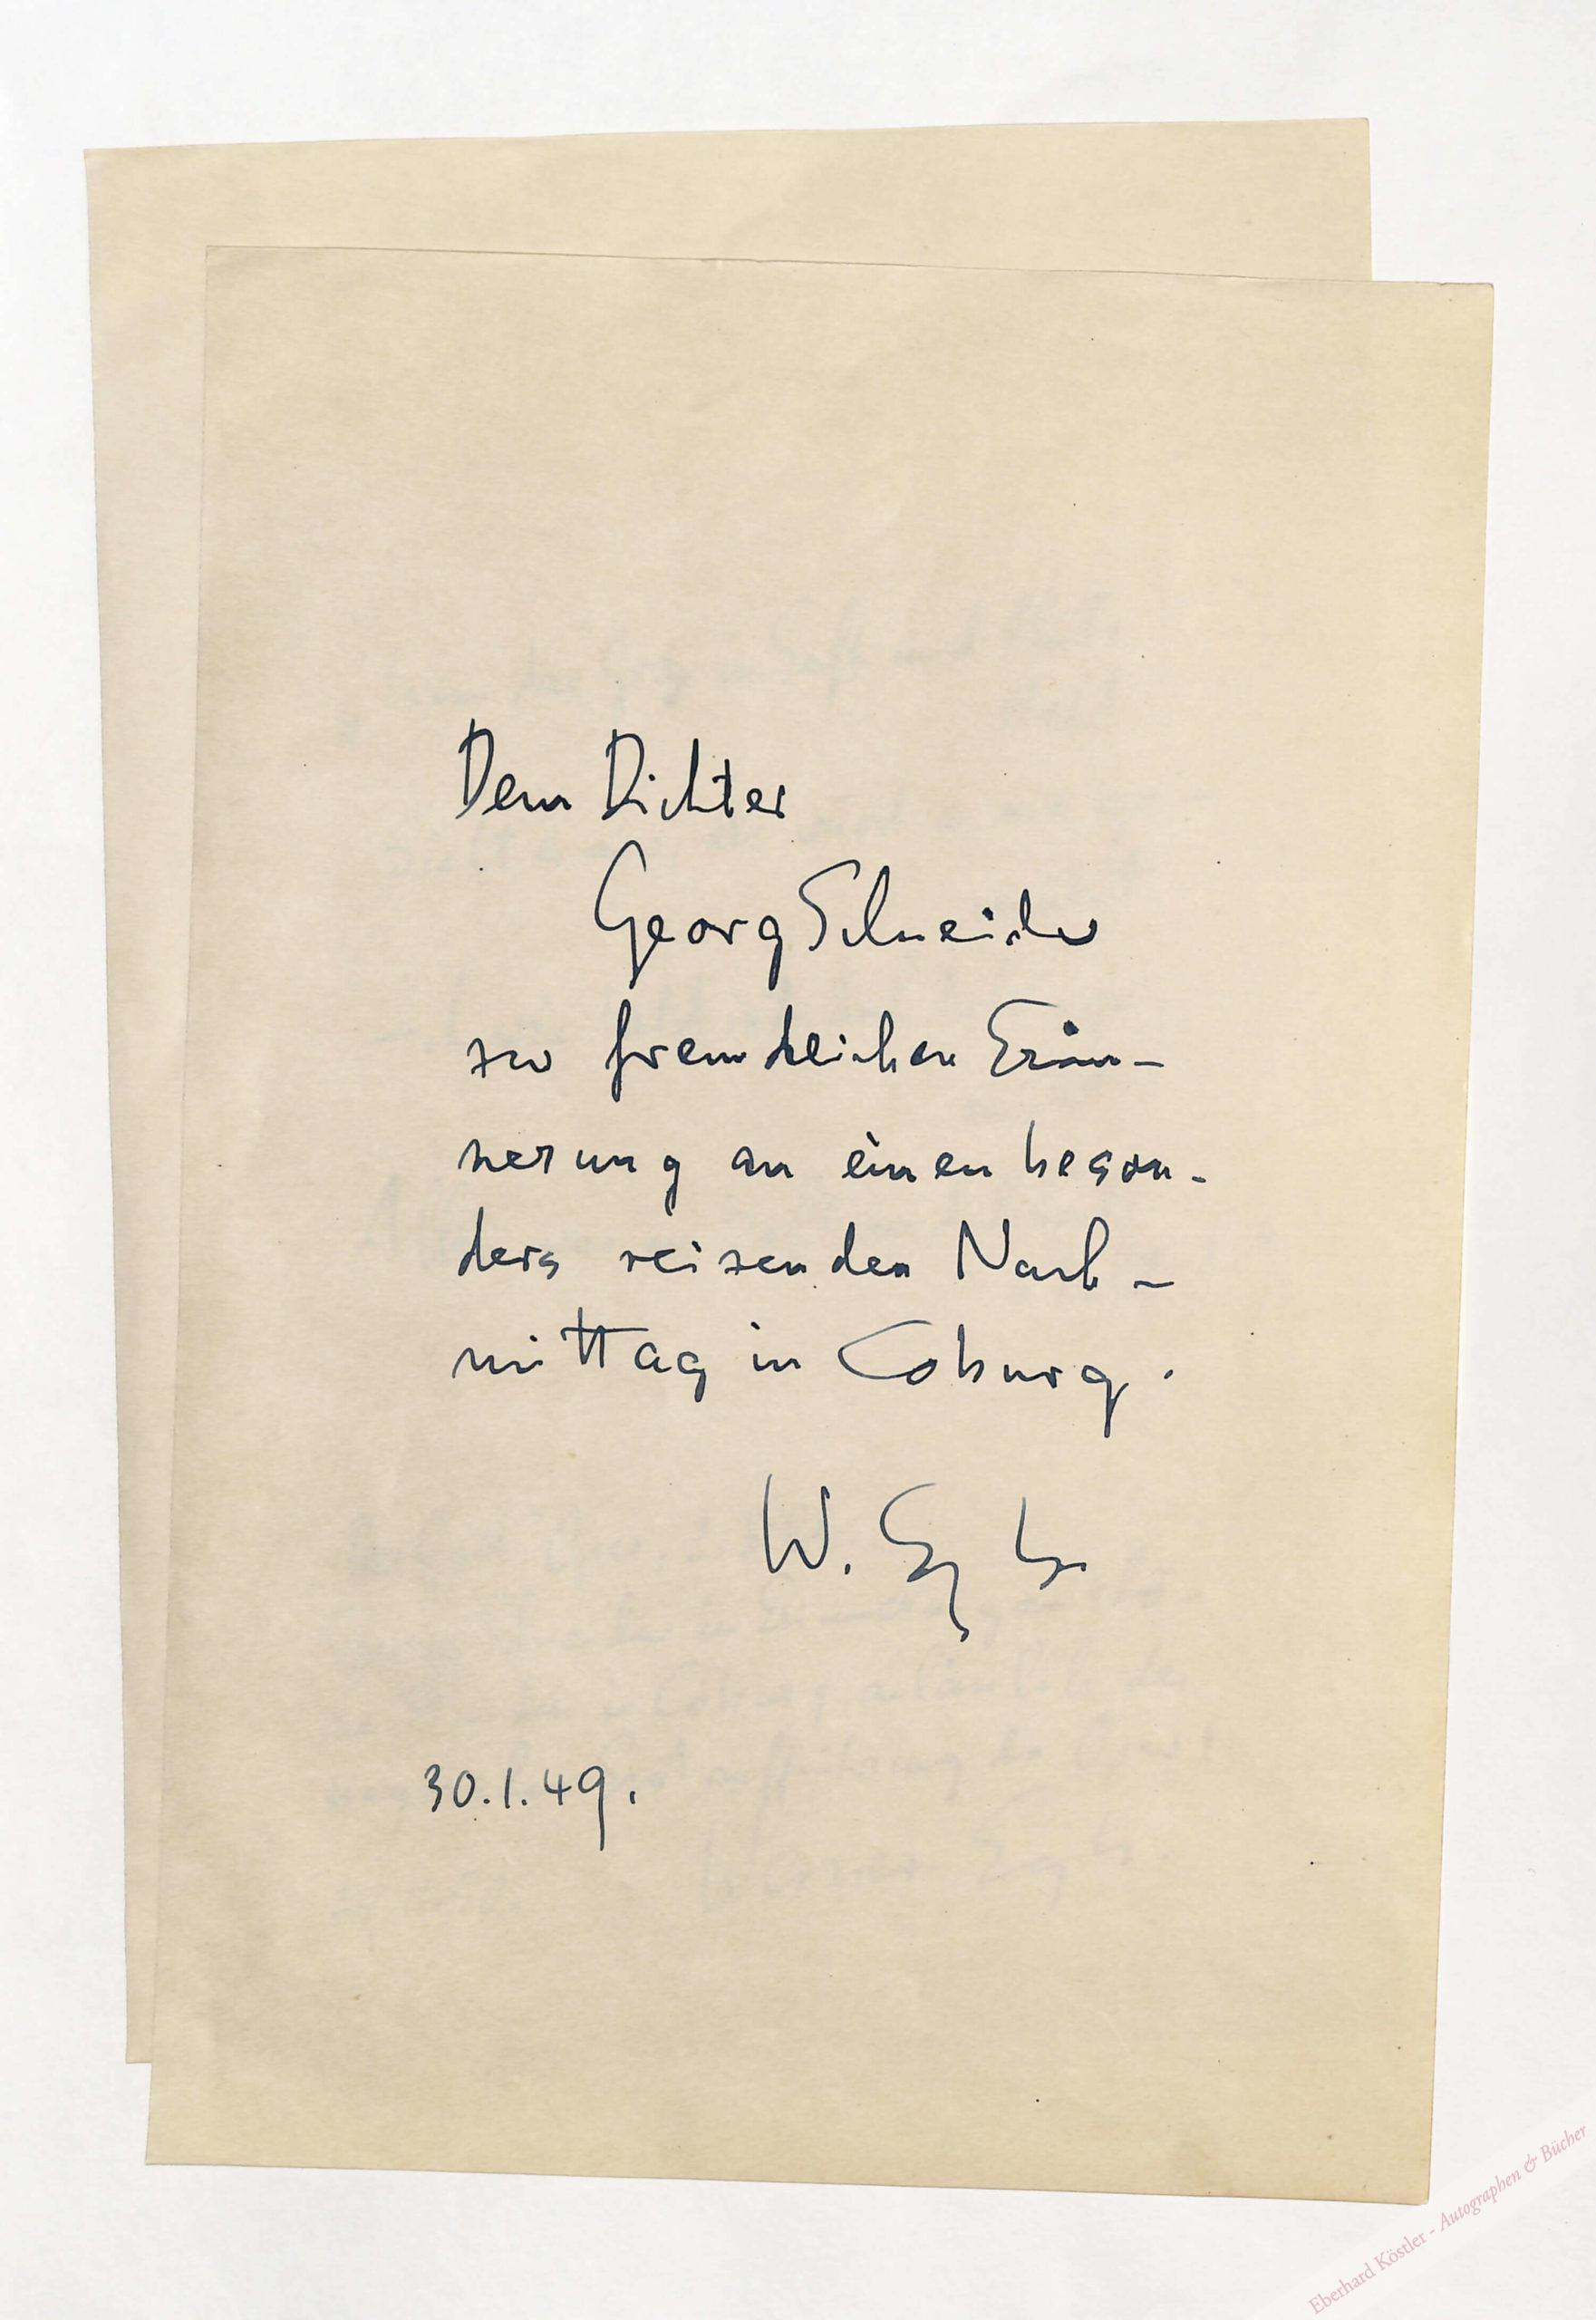 Dem Dichter
Georg Schneider
zur freundlichen Erin-
nerung an einen beson-
ders reizenden Nach-
mittag in Coburg.
W. Egk
30.1.49.
Eberhard Köstler - Autographen & Bücher